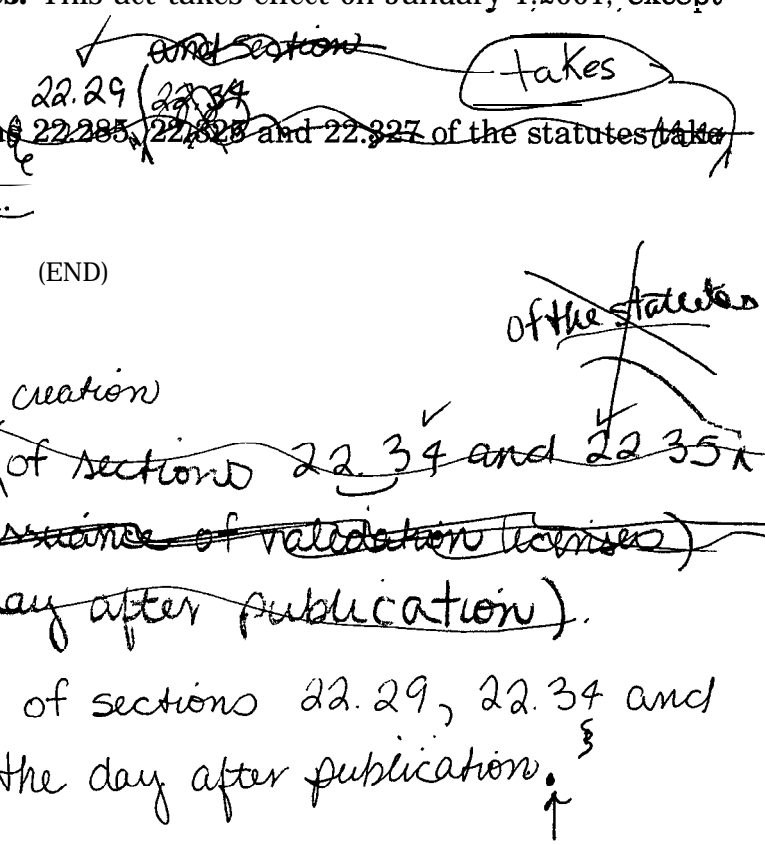 This act takes effect on January 1, 2001, except
and section
takes
22.29 (22.34
22.285, 22.325 and 22.327 of the statutes take
(END)
of the statutes
creation
of sections 22.34 and 22 35
of validation licenses)
after publication).
of sections 22.29, 22.34 and
the day after publication.